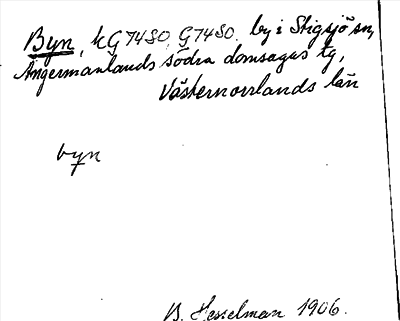 Byn, kG 7480, G7480. by i Stigsjö sn,
Ångermanlands södra domsagas tg,
Västernorrlands län
byn
B. Hesselman 1906.